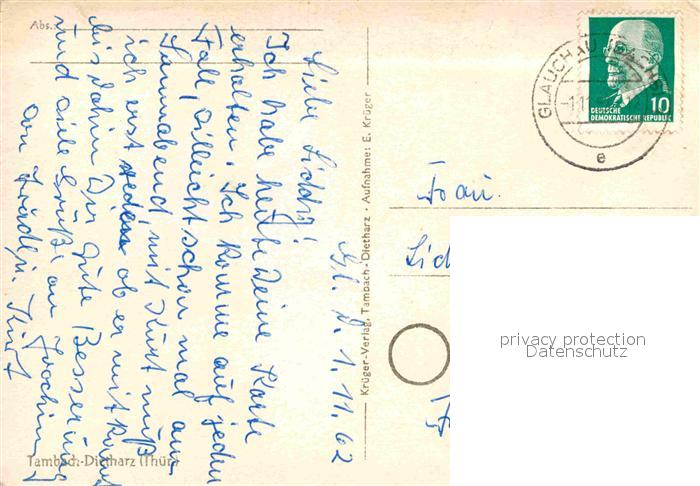 Abs.:
Gl. d. 1.11.62
Liebe Liddy!
Ich habe heute Deine Karte
erhalten. Ich komme auf jeden
Fall, vielleicht schon mal am
Sonnabend, mit Kurt muß
ich erst reden ob er mitkommt
bis dahin Dir gute Besserung
und viele Grüße an Joachim
an
Tambach-Dietharz (Thür.)
Krüger-Verlag, Tambach-Dietharz · Aufnahme: E. Krüger
GLAUCHAU (SACHS)
e
10
DEUTSCHE
DEMOKRATISCHE REPUBLIK
Frau
privacy protection
Datenschutz